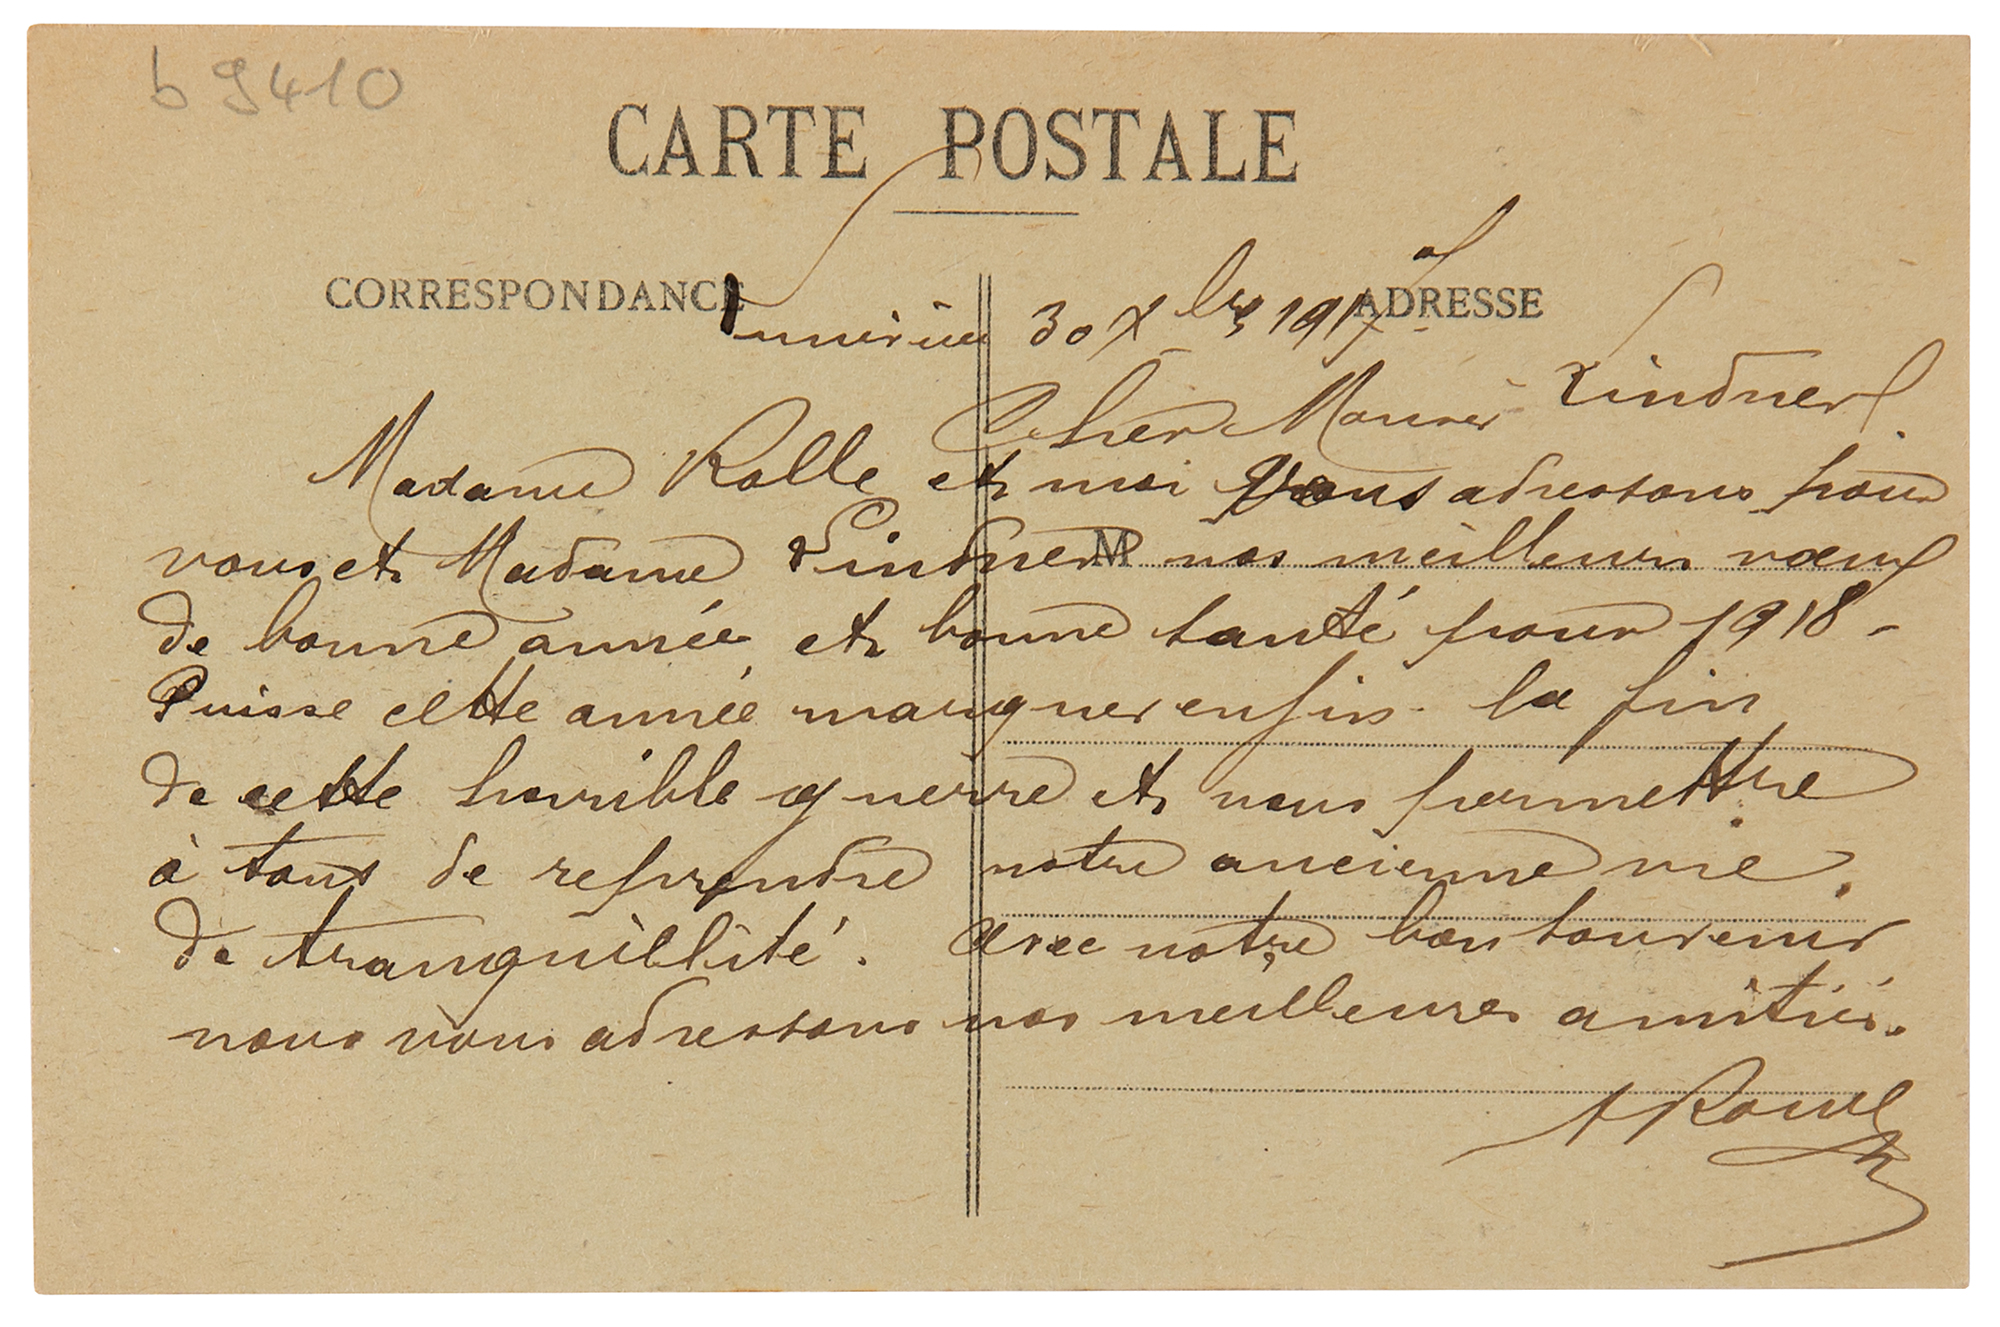 b 9410
CARTE POSTALE
CORRESPONDANCE
ADRESSE
30 Xbre 1917
Cher Lindner
Madame Rolle et moi vous adressons pour
vous et Madame Lindner M nos meilleurs vœux
de bonne année et bonne santé pour 1918 -
Puisse cette année marquer enfin la fin
de cette horrible guerre et nous permettre
à tous de reprendre notre ancienne vie
de tranquillité. Avec notre bon souvenir
nous vous adressons nos meilleures amitiés.